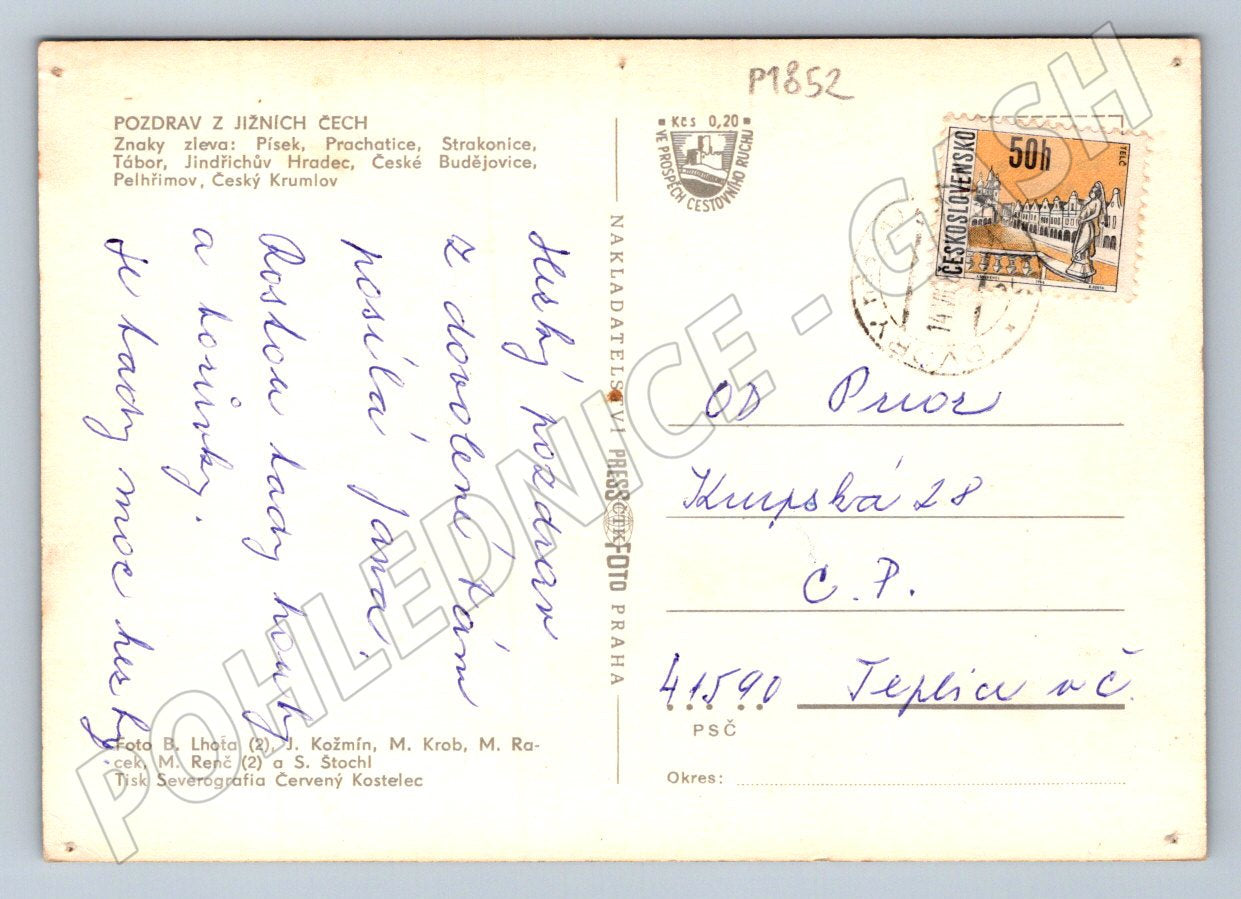 P1852
POZDRAV Z JIŽNÍCH ČECH
Znaky zleva: Písek, Prachatice, Strakonice,
Tábor, Jindřichův Hradec, České Budějovice,
Pelhřimov, Český Krumlov
Kčs 0,20
VE PROSPĚCH CESTOVNÍHO RUCHU
ČESKOSLOVENSKO
50h
TELČ
14 VII
Hezký pozdrav
z dovolené Vám
posílá Jana.
Rostou tady houby
a borůvky.
Je tady moc hezky.
NAKLADATELSTVÍ PRESSFOTO PRAHA
ČTK
OD Prior
Krupská 28
C. P.
41590 Teplice v Č.
PSČ
Okres:
Foto B. Lhoťa (2), J. Kožmín, M. Krob, M. Ra-
cek, M. Renč (2) a S. Štochl
Tisk Severografia Červený Kostelec
POHLEDNICE - GASH